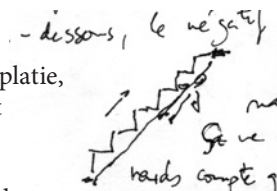 -dessous, le négatif
platie,
t
Ça ne
rends compte q